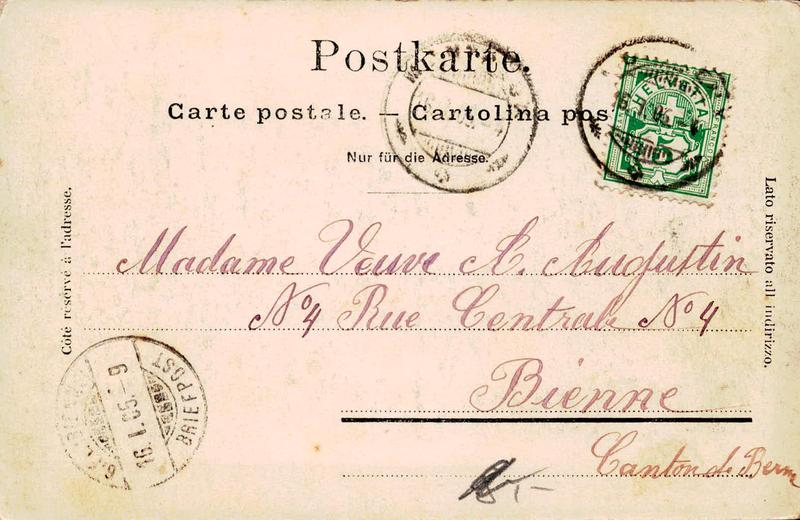 Postkarte.
Carte postale. — Cartolina pos
Nur für die Adresse.
HELVETIA
Côté réservé à l'adresse.
Lato riservato all indirizzo.
Madame Veuve A. Augustin
No 4 Rue Centrale No 4
Bienne
Canton de Berne
BRIEFPOST